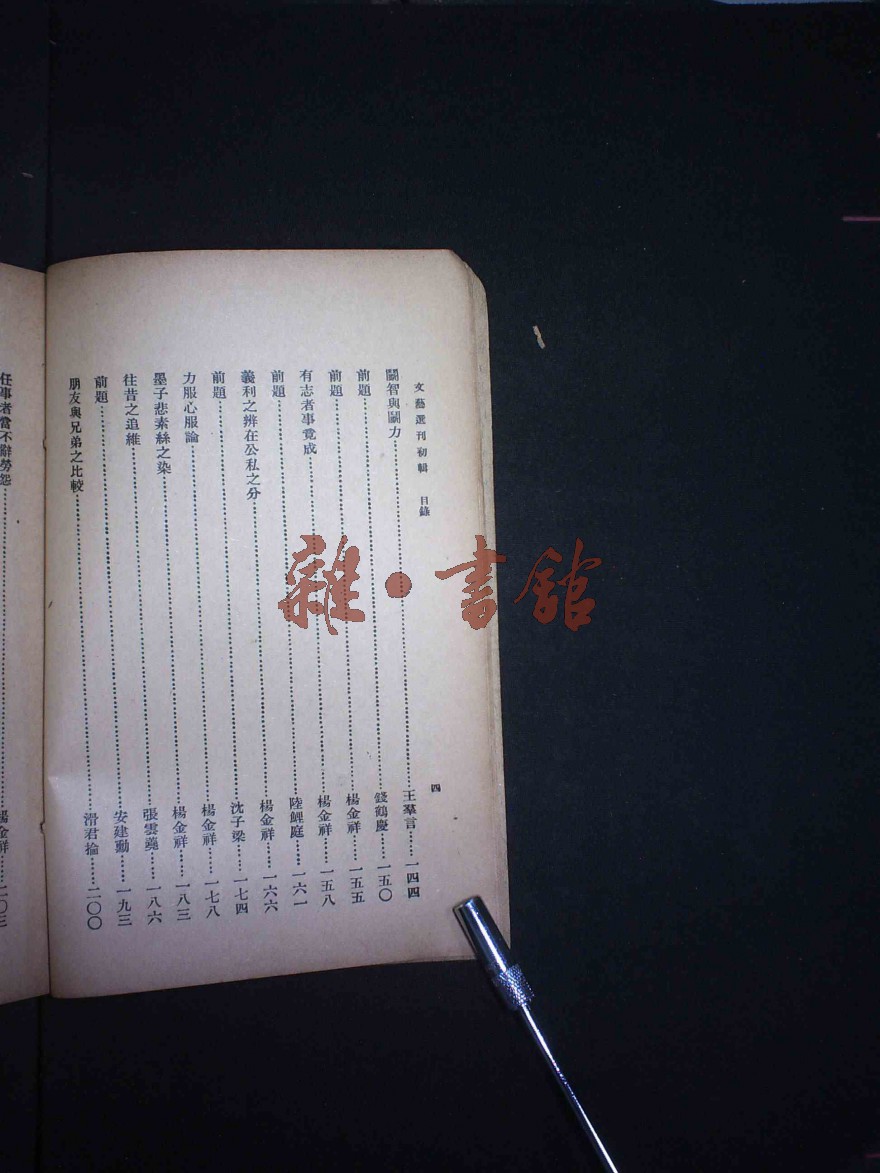 文藝選刊初輯 目錄 四
鬭智與鬭力……王羣言……一四四
前題……錢鶴慶……一五〇
前題……楊金祥……一五五
有志者事竟成……楊金祥……一五八
前題……陸鯉庭……一六一
義利之辨在公私之分……楊金祥……一六六
前題……沈子梁……一七四
力服心服論……楊金祥……一七八
墨子悲素絲之染……楊金祥……一八三
往昔之追維……張雲……一八六
前題……安建勳……一九三
朋友與兄弟之比較……滑君掄……二〇〇
任事者當不辭勞怨……楊金祥……二〇三
雜·書館